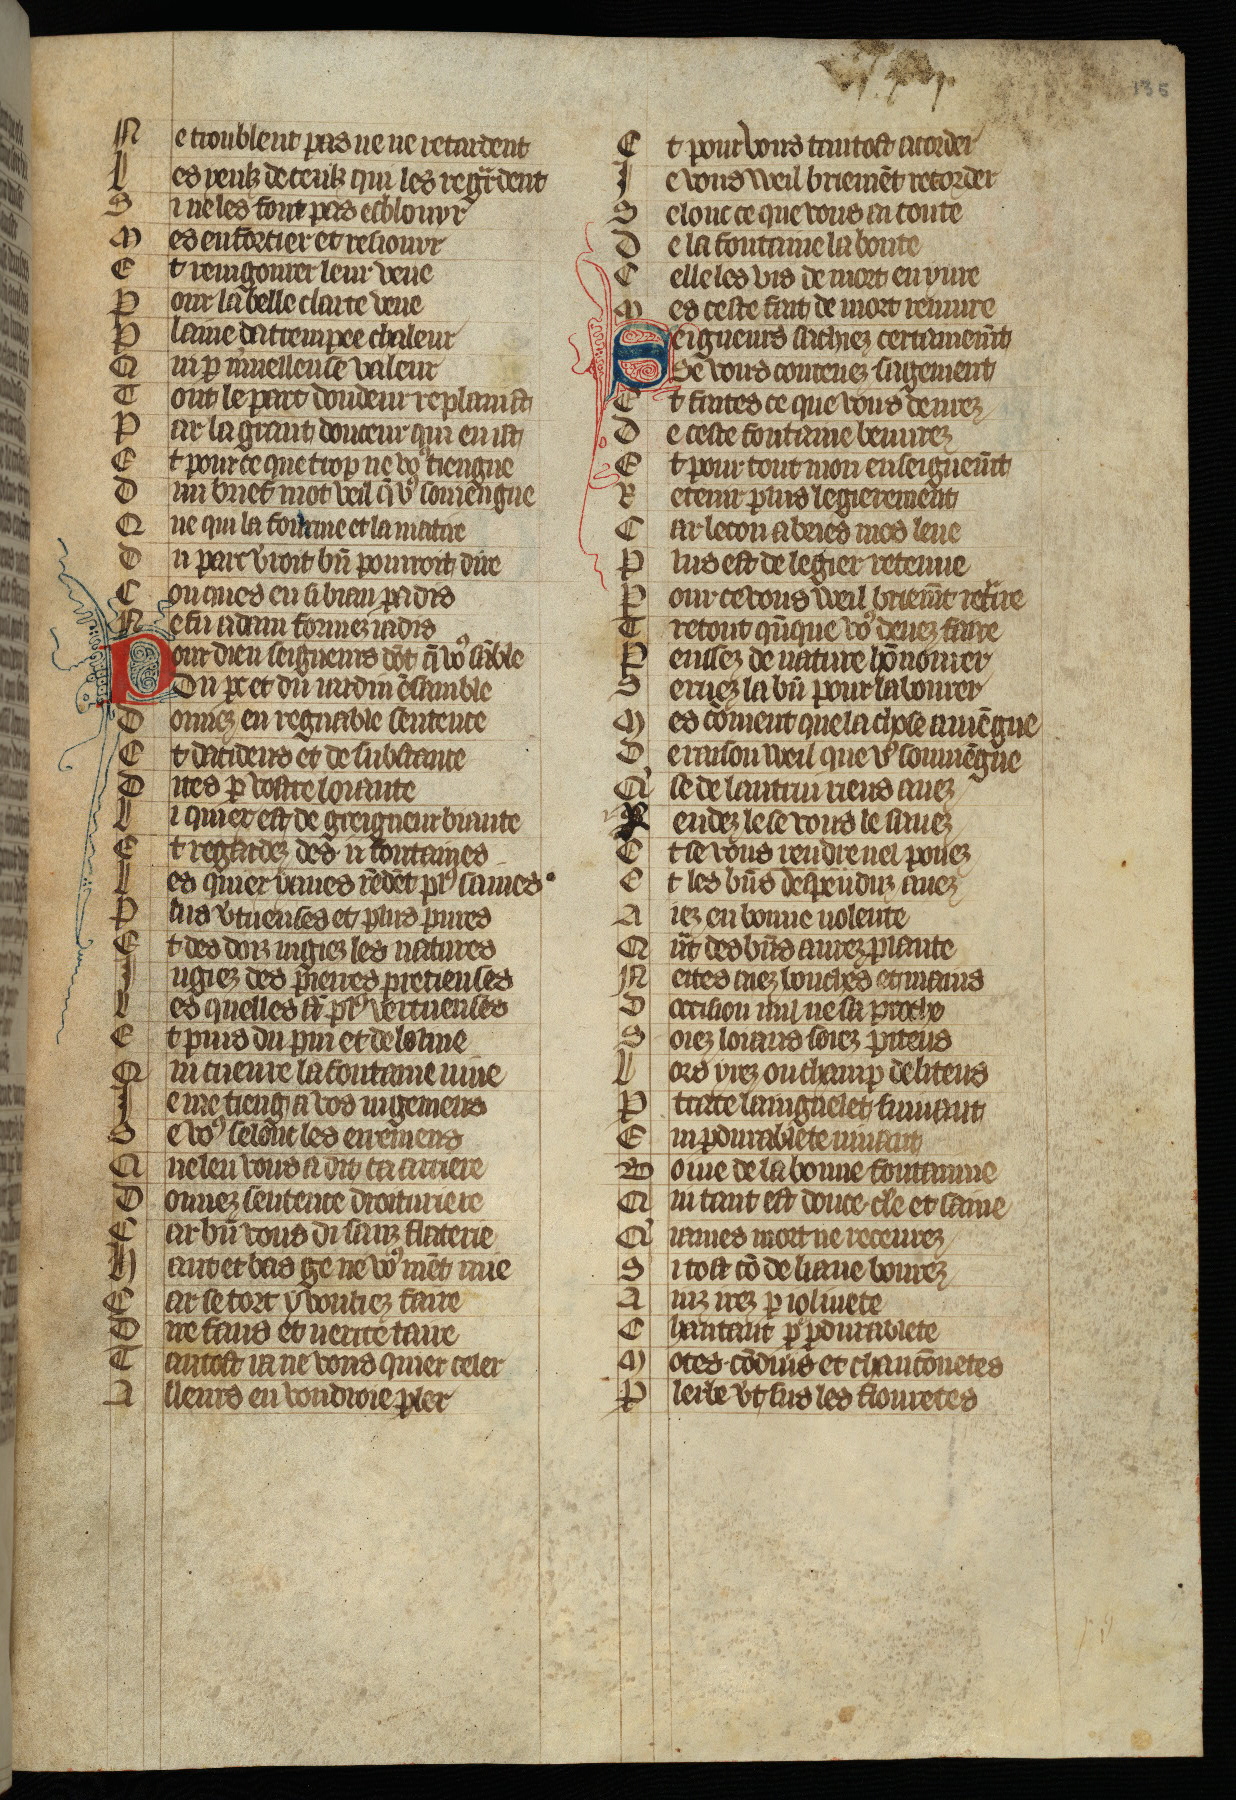 135
Ne troublent pas ne ne retardent
Les yeulz de ceulz qui les reg͛dent
Si ne les font pas esblouyr
Mes enforcier et resiouyr
Et reuigourer leur veue
Pour la belle clarte veue
Plaine datrempee chaleur
Qui ꝑ m͛uelleuse valeur
Tout le parc doudeur replanist
Par la grant douceur qui en ist
Et pour ce que trop ne voꝰ tiengne
Dun brief mot veil q̄ vꝰ souiengne
Que qui la fourme et la matire
Du parc v͛roit bn̄ pourroit dire
Conques en si biau paradis
Ne fu adam formez iadis
Pour dieu seigneurs dōt q̄ voꝰ sāble
Du ꝑc et du iardin ēsamble
Donnez en regnable sentence
Et dacidens et de substance
Dites ꝑ vostre loiaute
Li quiex est de greigneur biaute
Et regardez des ii fontaines
Les quiex yaues rēdēt plꝰ saines
Plus v͛tueuses et plus pures
Et des doiz iugiez les natures
Iugiez des pierres precieuses
Les quelles sūt plꝰ vertueuses
Et puis du pin et de loliue
Qui cueuure la fontaine uiue
Ie me tieng a vos iugemens
Se voꝰ selonc les erremens
Que leu vous a dit ca arriere
Donnez sentence droituriere
Car bn̄ vous di sanz flaterie
Haut et bas ge ne voꝰ mēt mie
Car se tort y vouliez faire
Dire faus et uerite taire
Tantost ia ne vous quier celer
Alleurs en voudroie ꝑler
Et pour vous tantost acorder
Ie vous weil briemēt recorder
Selonc ce que vous ai conte
De la fontaine la bonte
Celle les vis de mort enyure
Mes ceste fait de mort reuiure
Seigneurs sachiez certainem̄t
Se vous contenez sagement
Et faites ce que vous deurez
De ceste fontaine beuurez
Et pour tout mon enseignem̄t
Retenir plus legierement
Car lecon a bries mos leue
Plus est de legier retenue
Pour ce vous weil briem̄t ret͛ire
Tretout qūque voꝰ deuez faire
Penssez de nature hōnourer
Seruez la bn̄ pour labourer
Mes cōment que la chose auiēgne
De raison weil que vꝰ souuiēgne
Que se de lautrui riens auez
Rendez le se vous le sauez
Et se vous rendre nel pouez
Et les bn̄s despēduz auez
Aiez en bonne uolente
Quāt des bn̄s aurez plante
Netes aiez bouches et mains
Doccision nul ne sa proche
Soiez loiaus soiez piteus
Lors yrez ou champ deliteus
Par trace laingnelet suiuant
En ꝑdurablete uiuant
Boiure de la bonne fontainne
Qui tant est douce cle et saine
Que iames mort ne receurez
Si tost cō de liaue beurez
Ainz irez ꝑ ioliuete
Chantant ꝑ ꝑdurablete
Motes cōduis et chancōnetes
Par lerbe v͛t sus les flouretes